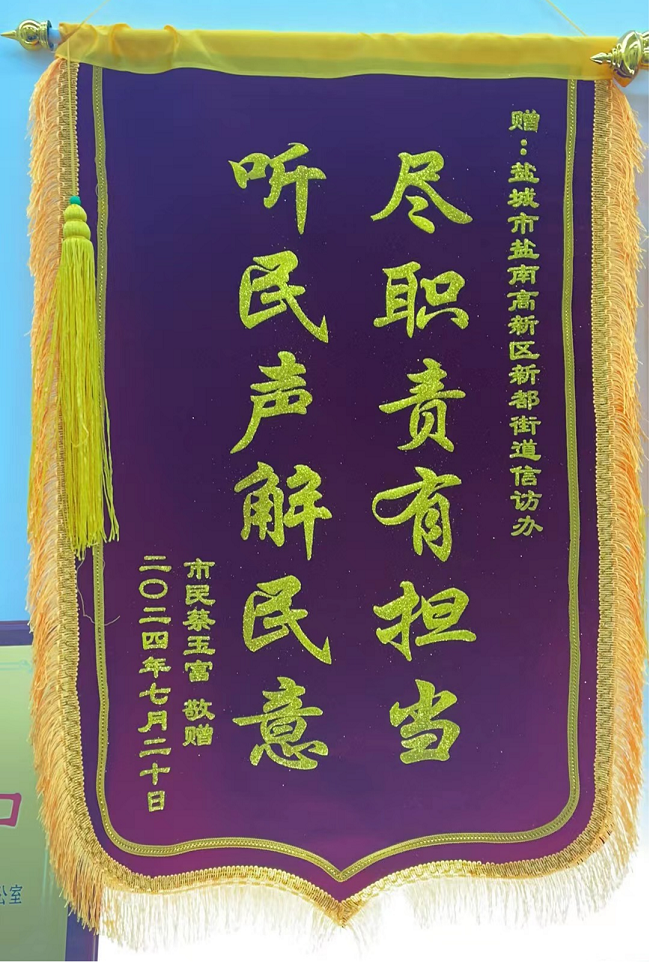 赠：盐城市盐南高新区新都街道信访办
尽职责有担当
听民声解民意
市民蔡玉富 敬赠
二〇二四年七月二十日